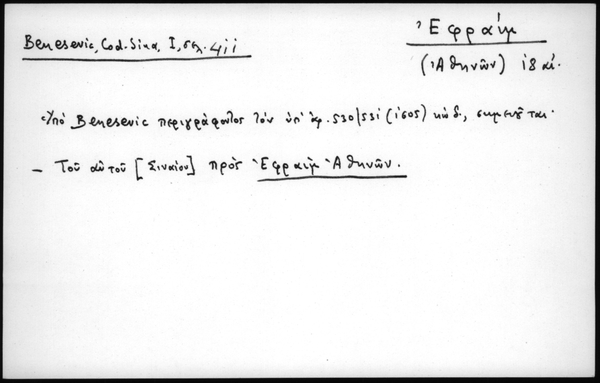 Benesevic, Cod. Sina, I, σελ. 411
Ἐφραίμ
(Ἀθηνῶν) 18 αἰ.
Ὑπὸ Benesevic περιγράφοντος τὸν ὑπ' ἀρ. 530/531 (1605) κώδ., σημειοῦται.
— Τοῦ αὐτοῦ [Σιναίου] πρὸς Ἐφραὶμ Ἀθηνῶν.